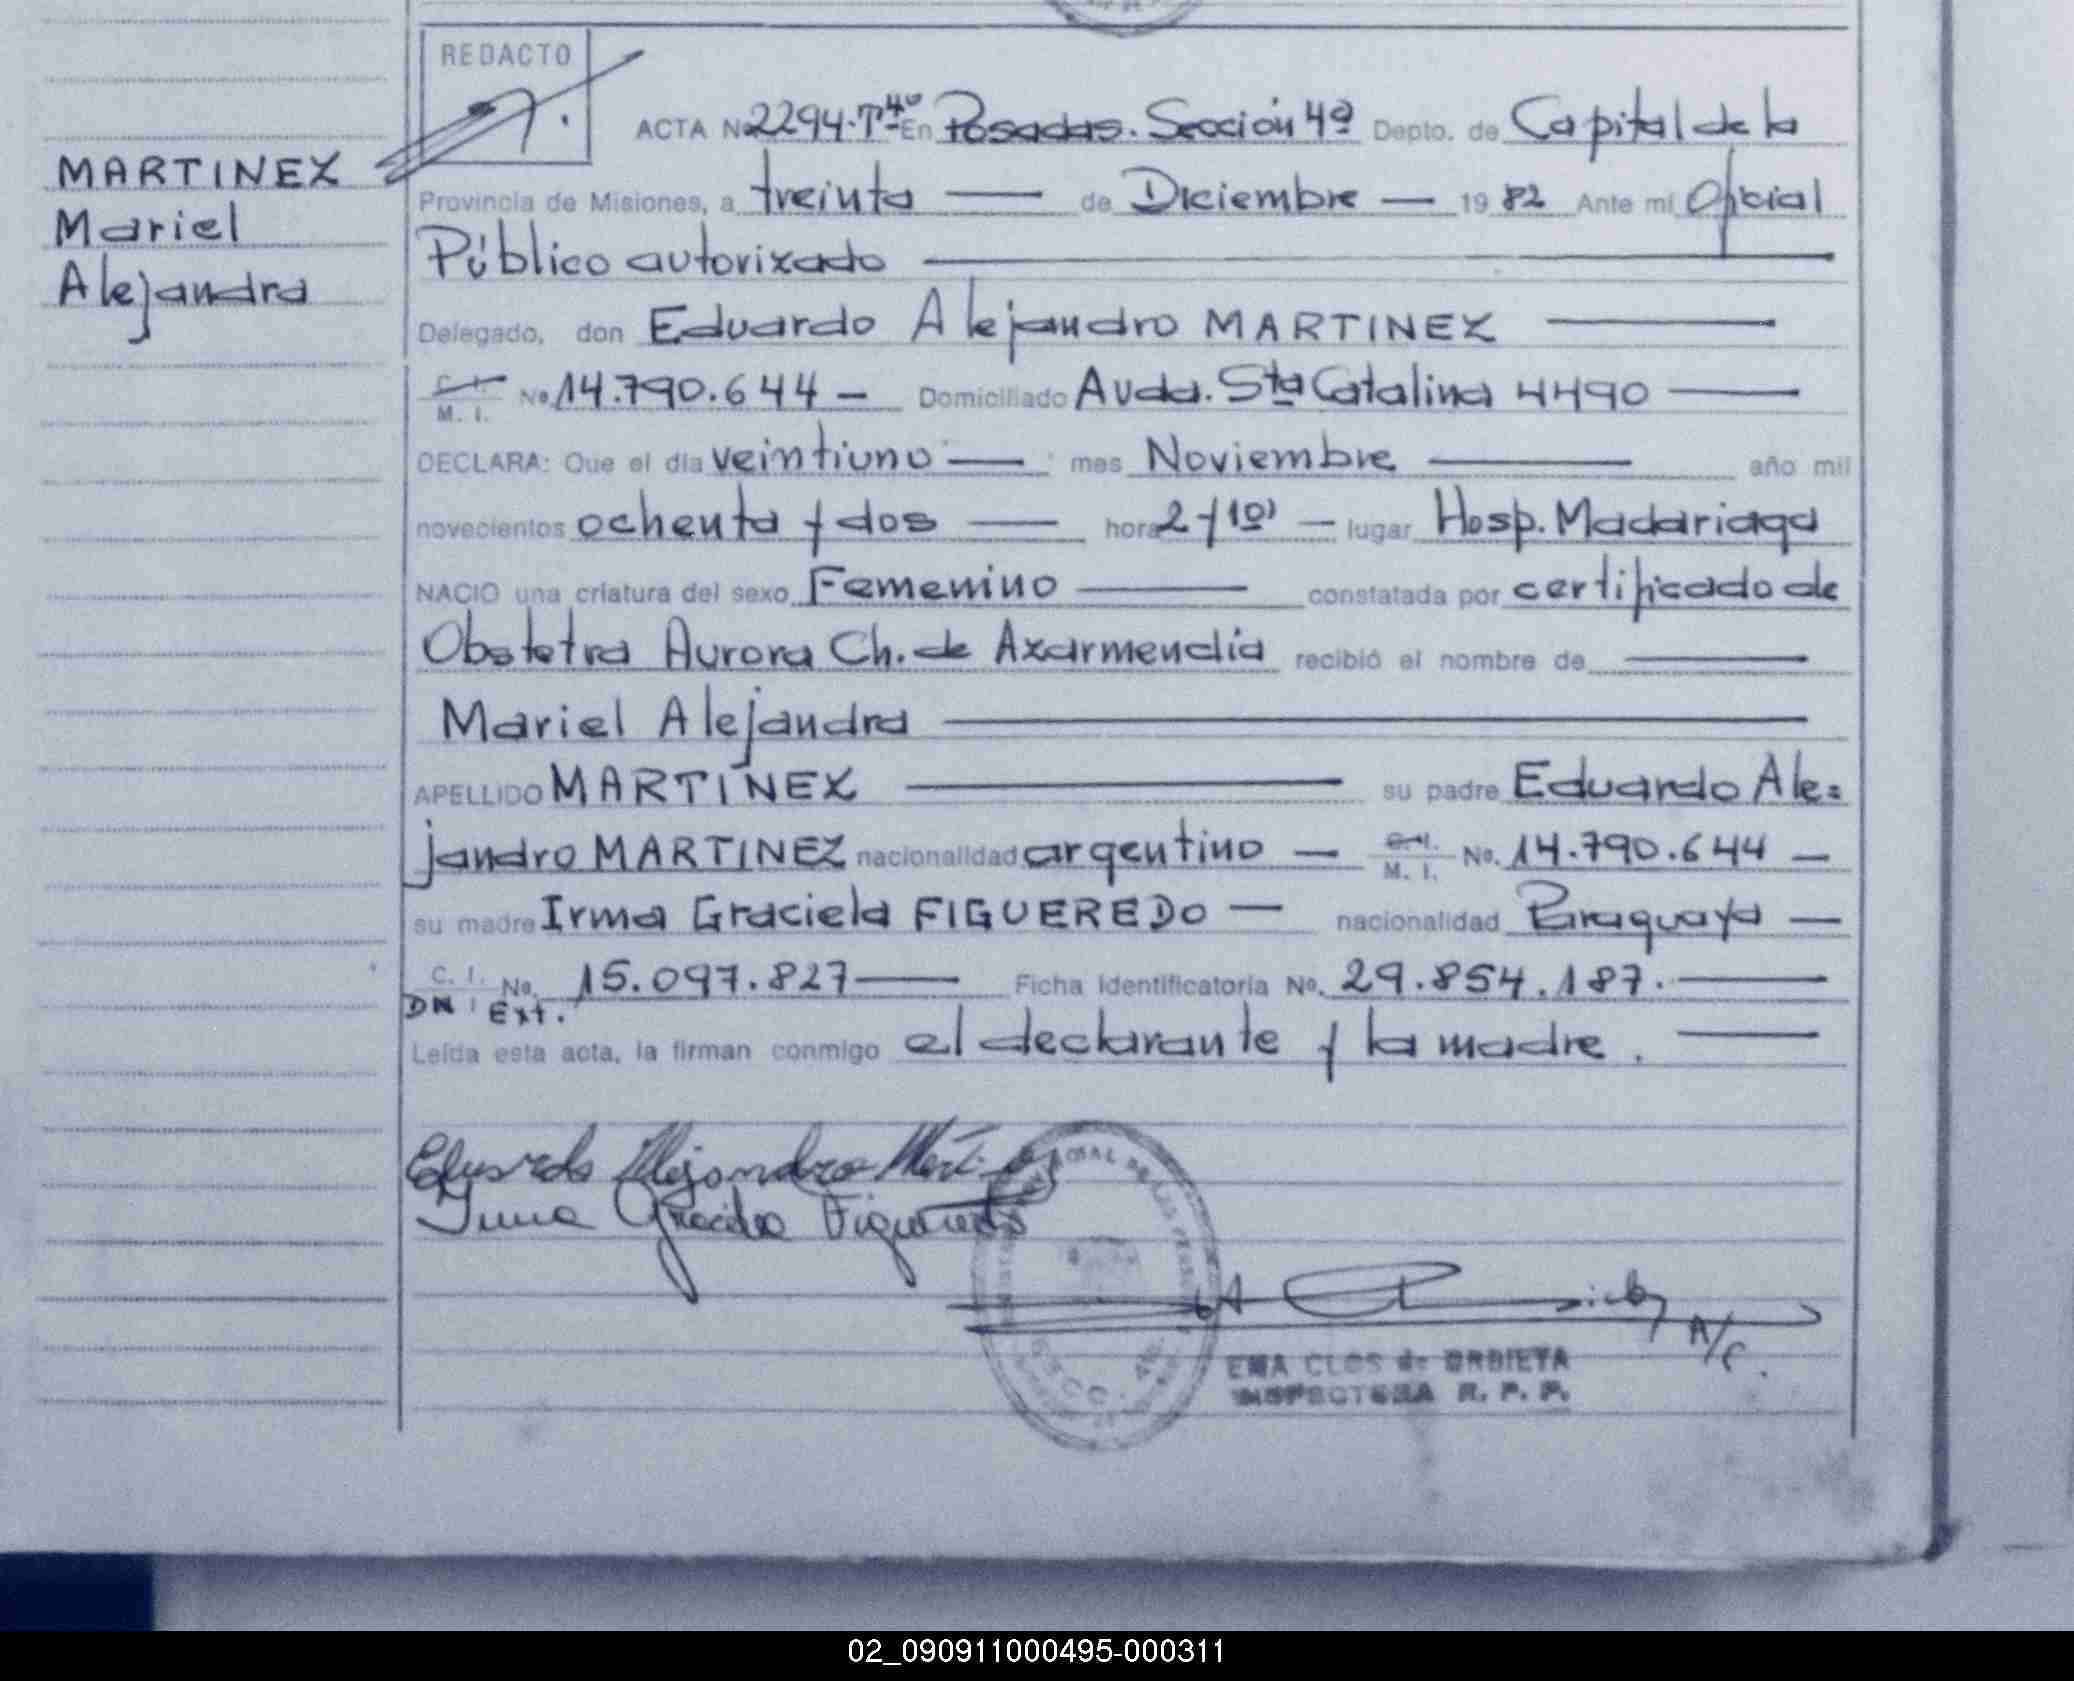 REDACTO
ACTA No 2294-Tº4º En Posadas. Sección 4ª Depto. de Capital de la
MARTINEZ
Mariel
Alejandra
Provincia de Misiones, a treinta — de Diciembre — 1982 Ante mi Oficial
Público autorizado —
Delegado, don Eduardo Alejandro MARTINEZ —
C. I. M. I. No. 14.790.644 — Domiciliado Avda. Sta Catalina 4490 —
DECLARA: Que el día veintiuno — mes Noviembre — año mil
novecientos ochenta y dos — hora 2 y 10' — lugar Hosp. Madariaga
NACIO una criatura del sexo Femenino — constatada por certificado de
Obstetra Aurora Ch. de Azarmendia recibió el nombre de —
Mariel Alejandra —
APELLIDO MARTINEZ — su padre Eduardo Ale=
jandro MARTINEZ nacionalidad argentino — C. I. M. I. No. 14.790.644 —
su madre Irma Graciela FIGUEREDO — nacionalidad Paraguaya —
C. I. No. 15.097.827 — Ficha Identificatoria No. 29.854.187. —
DNI Ext.
Leída esta acta, la firman conmigo el declarante y la madre. —
Eduardo Alejandro Martinez
Irma Graciela Figueredo
A/C.
EMA CLOS de URBIETA
INSPECTORA R. P. P.
02_090911000495-000311